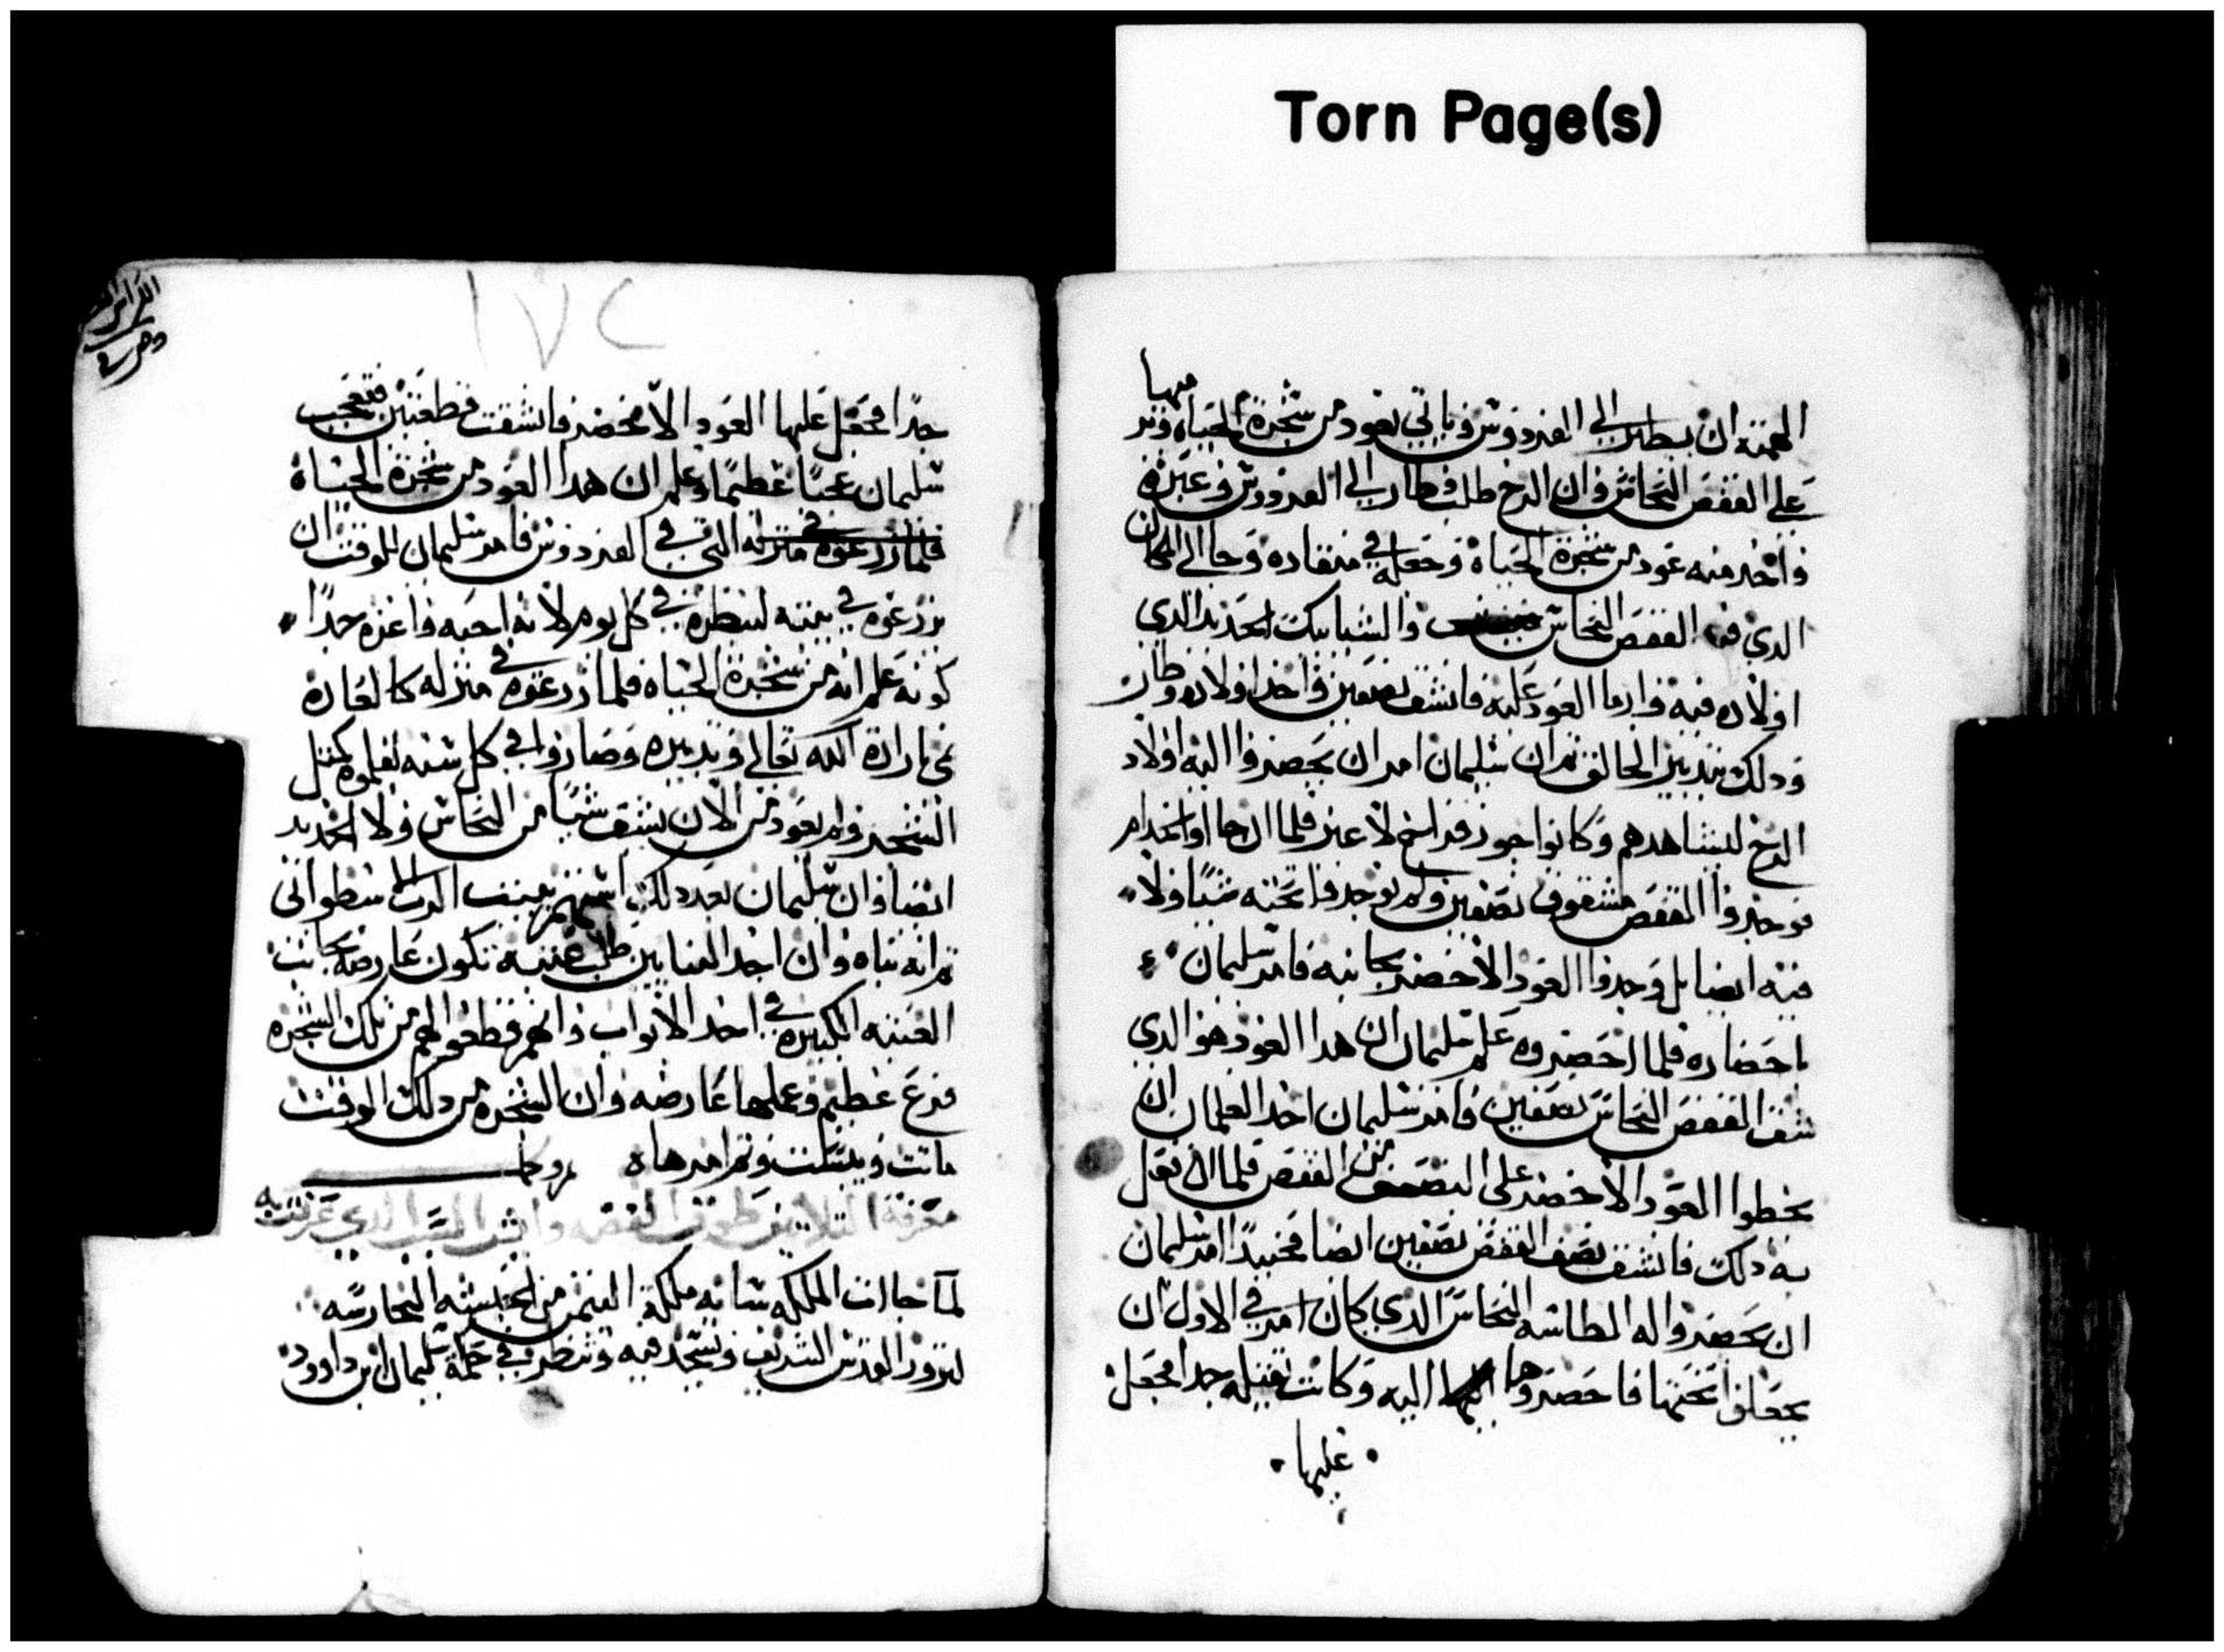 Torn Page(s)
الهمته ان يطير الى الفردوس وياتي بعود من شجرة الحياه ويرميها
على القفص النحاس وان الرخ طلب وطار الى الفردوس وعبره
واخد منه عود من شجرة الحياة وجعله في منقاده وجا الى المكان
الدي فيه القفص النحاس والشبابيك الحديد الدي
اولاده فيه وارما العود عليه فانشق نصفين واخد اولاده وطار
ودلك بتدبير الخالق تم ان سليمان امر ان يحضروا اليه اولاد
الرخ ليشاهدهم وكانوا جوز فراخ لا غير فلما ان جا اوا الخدام
فوجدوا القفص مشقوق نصفين ولم يوجدوا تحته شيا ولا
فيه ايضا بل وجدوا العود الاخضر بجانبه فامر سليمان
باحضاره فلما احضروه علم سليمان ان هدا العود هو الدي
شق القفص النحاس نصفين وامر سليمان احد الغلمان ان
يحطوا العود الاخضر على النصف من القفص فلما ان فعل
به دلك فانشق نصف القفص نصفين ايضا فحينيدًا امر سليمان
ان يحضروا له الطاسه النحاس الدي كان امر في الاول ان
يجعلوا تحتها فاحضروها اليه وكانت تقيله جدا فجعل
عليها
١٧٢
جدًا فجعل عليها العود الاخضر فانشقت قطعتين فتعجب
سليمان عجبًا عظيمًا وعلم ان هدا العود من شجرة الحياة
فلما زرعوه في منزله التي في الفردوس فامر سليمان للوقت ان
يزرعوه في بيته لينظره في كل يوم لانه احبه واعزه جدًا
كونه علم انه من شجرة الحياه فلما زرعوه في منزله كالعادة
نمى بارادة الله تعالى وتدبيره وصاروا في كل سنه يقلموه كمثل
الشجر ولم يعود من الان يشق شيًا من النحاس ولا الحديد
ايضا وان سليمان بعد دلك
تم انه بناه وان احد البنايين طلب عتبه تكون عارضه بجانب
العتبه الكبيره في احد الابواب وانهم قطعوا لهم من تلك الشجره
فرع عظيم وعملها عارضه وان الشجره من دلك الوقت
ماتت ويبست وتم امرها
معرفة التلاتين الفضه السر الدي عرفت به
لما جاات الملكه سابه ملكة اليمن من الحبشه
لتزور القدس الشريف وتسجد فيه وتنظر في حكمة سليمان ابن داوود